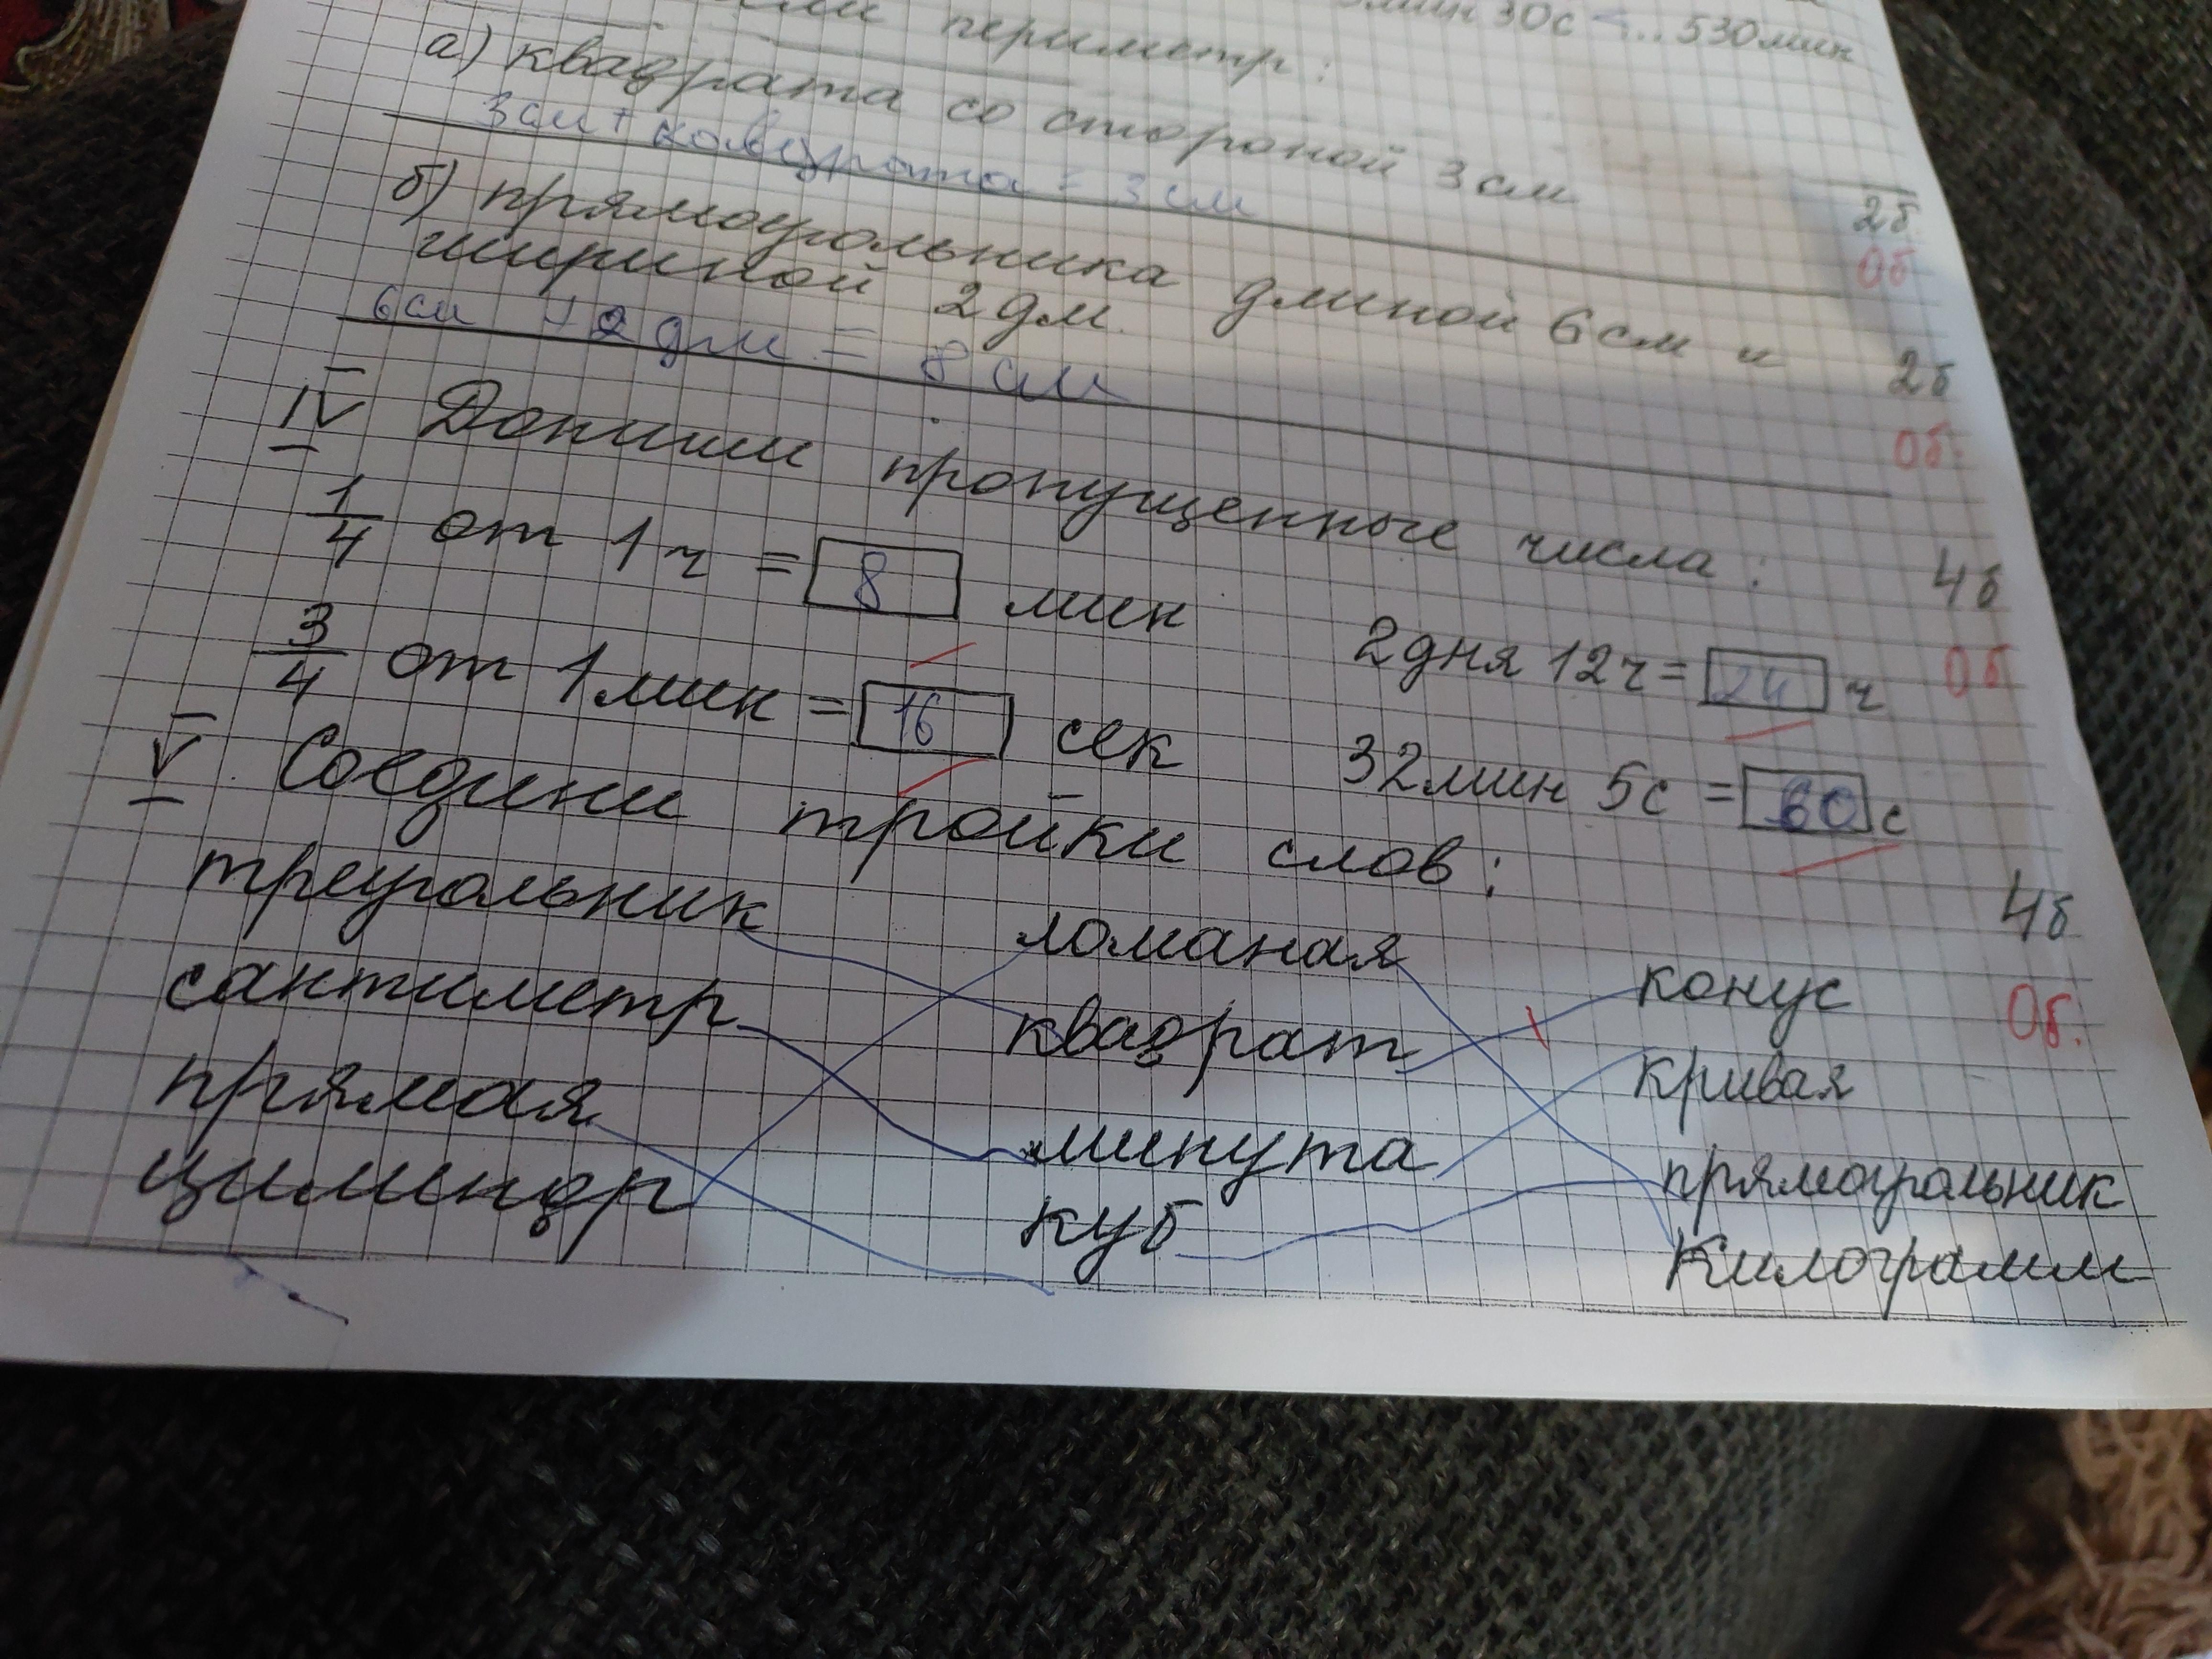 периметр:
30с < ... 530мин
а) квадрата со стороной 3см
3см + квадрата = 3см
2б
0б
б) прямоугольника длиной 6см и
шириной 2дм.
6см + 2дм = 8см
2б
0б.
IV Допиши пропущенные числа:
4б
0б
1/4 от 1ч = 8 мин
2дня 12ч = 24 ч
3/4 от 1мин = 16 сек
32мин 5с = 60 с
V Соедини тройки слов:
4б
0б.
треугольник ломаная конус
сантиметр квадрат кривая
прямая минута прямоугольник
цилиндр куб килограмм